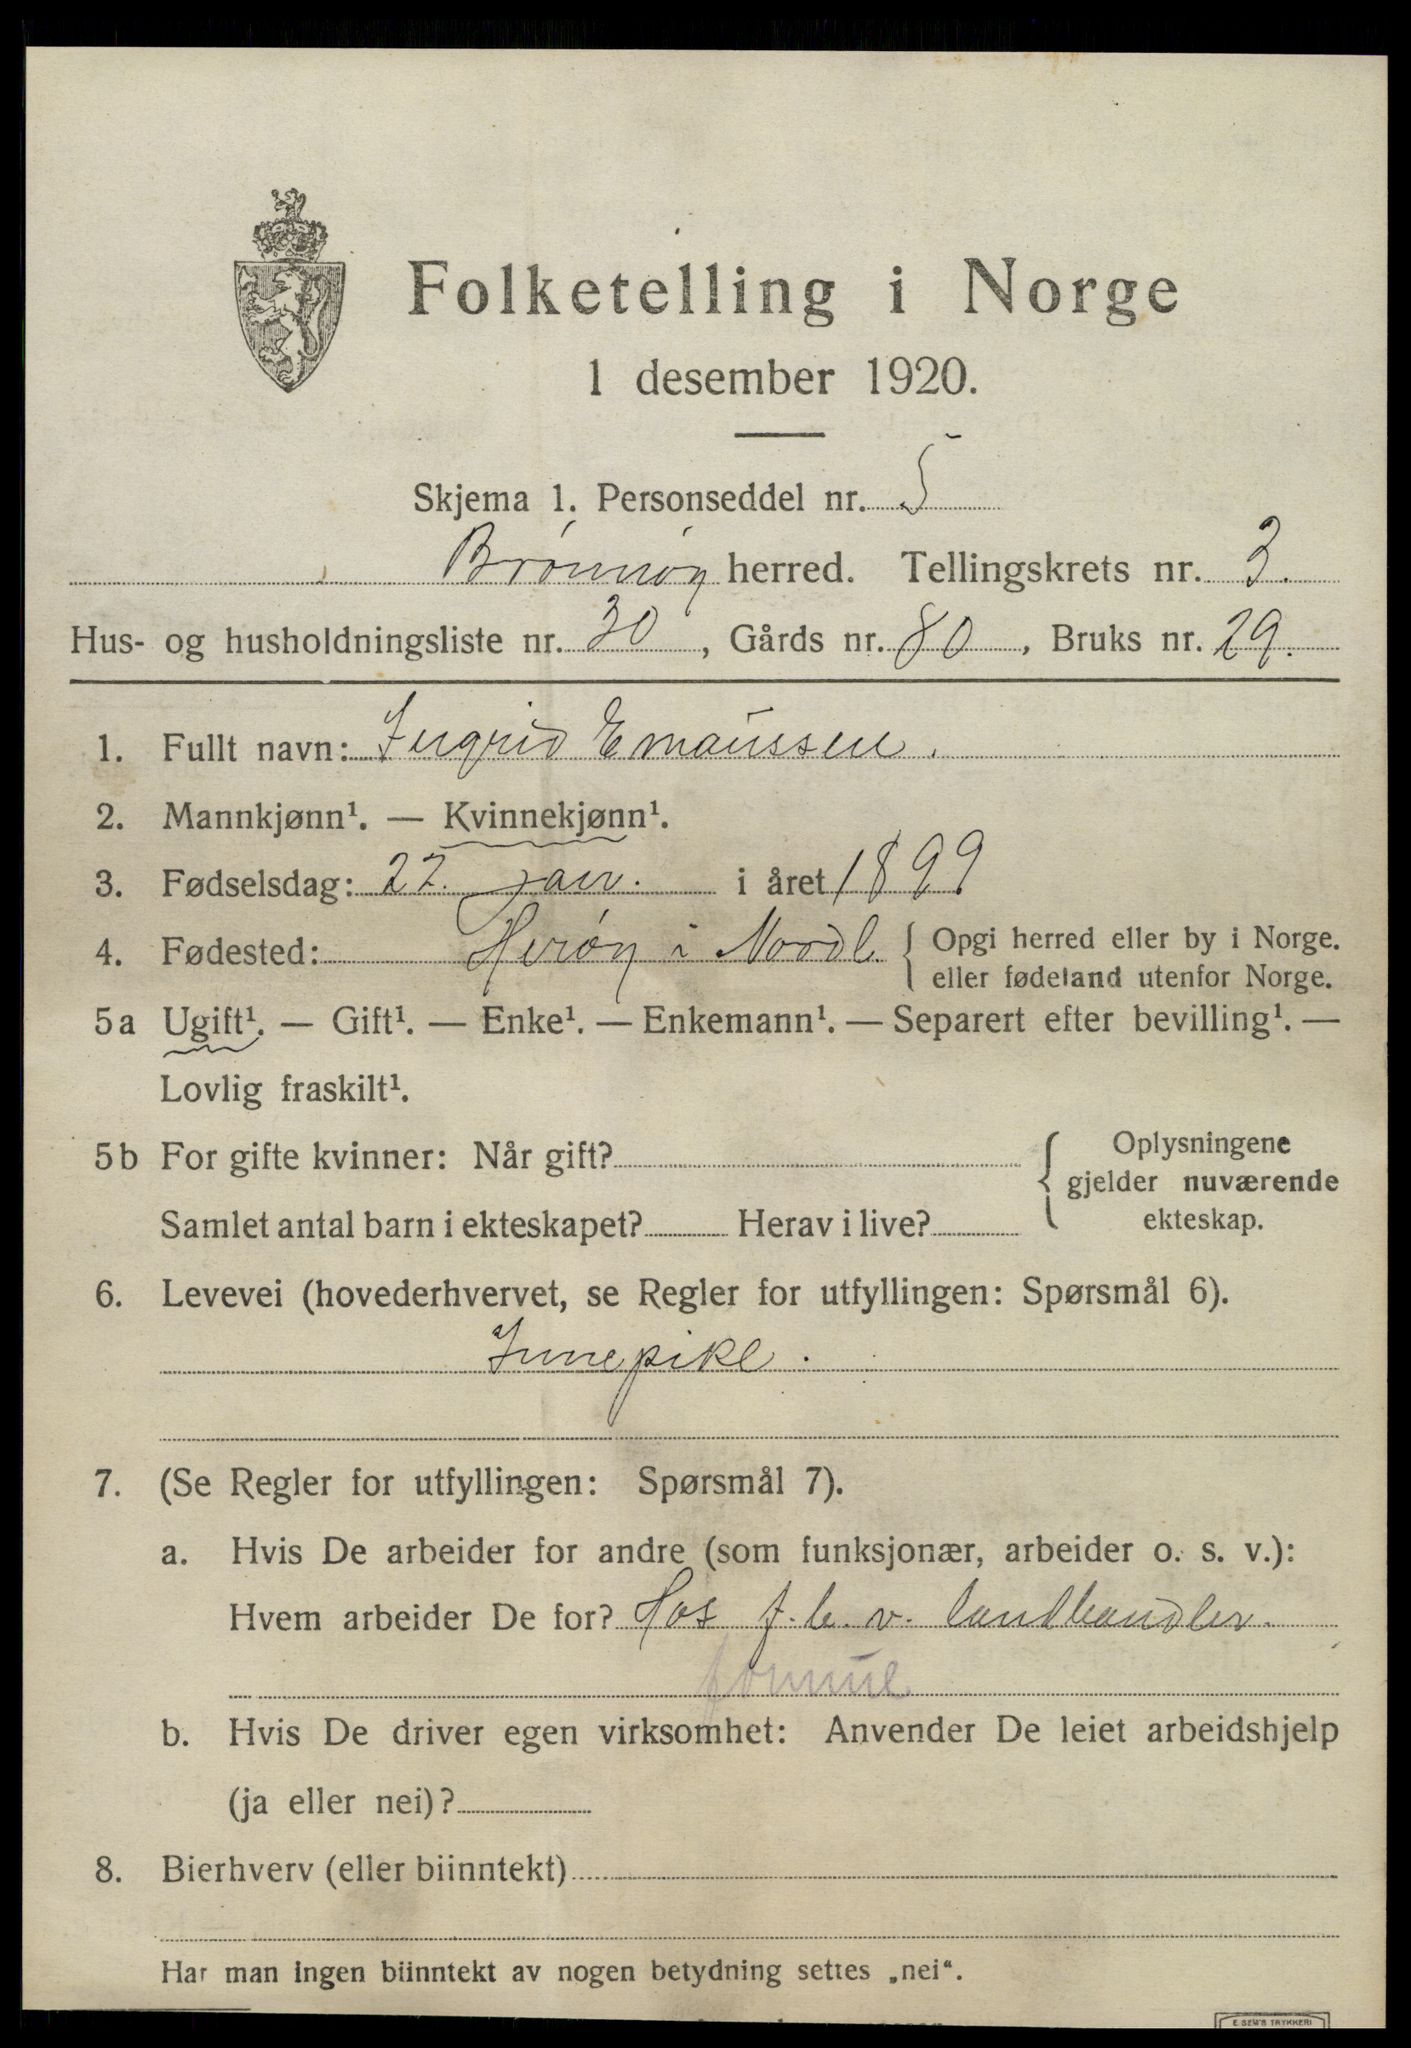 Folketelling i Norge
1 desember 1920.
Skjema 1. Personseddel nr. 5
Brønnøy herred. Tellingskrets nr. 3.
Hus- og husholdningsliste nr. 30, Gårds nr. 80, Bruks nr. 29.
1. Fullt navn: Ingrid Emaussen.
2. Mannkjønn¹. — Kvinnekjønn¹.
3. Fødselsdag: 22. Jan. i året 1899
4. Fødested: Herøy i Nordl. { Opgi herred eller by i Norge.
eller fødeland utenfor Norge.
5a Ugift¹. — Gift¹. — Enke¹. — Enkemann¹. — Separert efter bevilling¹. —
Lovlig fraskilt¹.
5b For gifte kvinner: Når gift? { Oplysningene
gjelder nuværende
Samlet antal barn i ekteskapet? Herav i live? ekteskap.
6. Levevei (hovederhvervet, se Regler for utfyllingen: Spørsmål 6).
Innepike.
7. (Se Regler for utfyllingen: Spørsmål 7).
a. Hvis De arbeider for andre (som funksjonær, arbeider o. s. v.):
Hvem arbeider De for? Hos f. h. v. landhandler.
b. Hvis De driver egen virksomhet: Anvender De leiet arbeidshjelp
(ja eller nei)?
8. Bierhverv (eller biinntekt)
Har man ingen biinntekt av nogen betydning settes „nei“.
E. SEM'S TRYKKERI